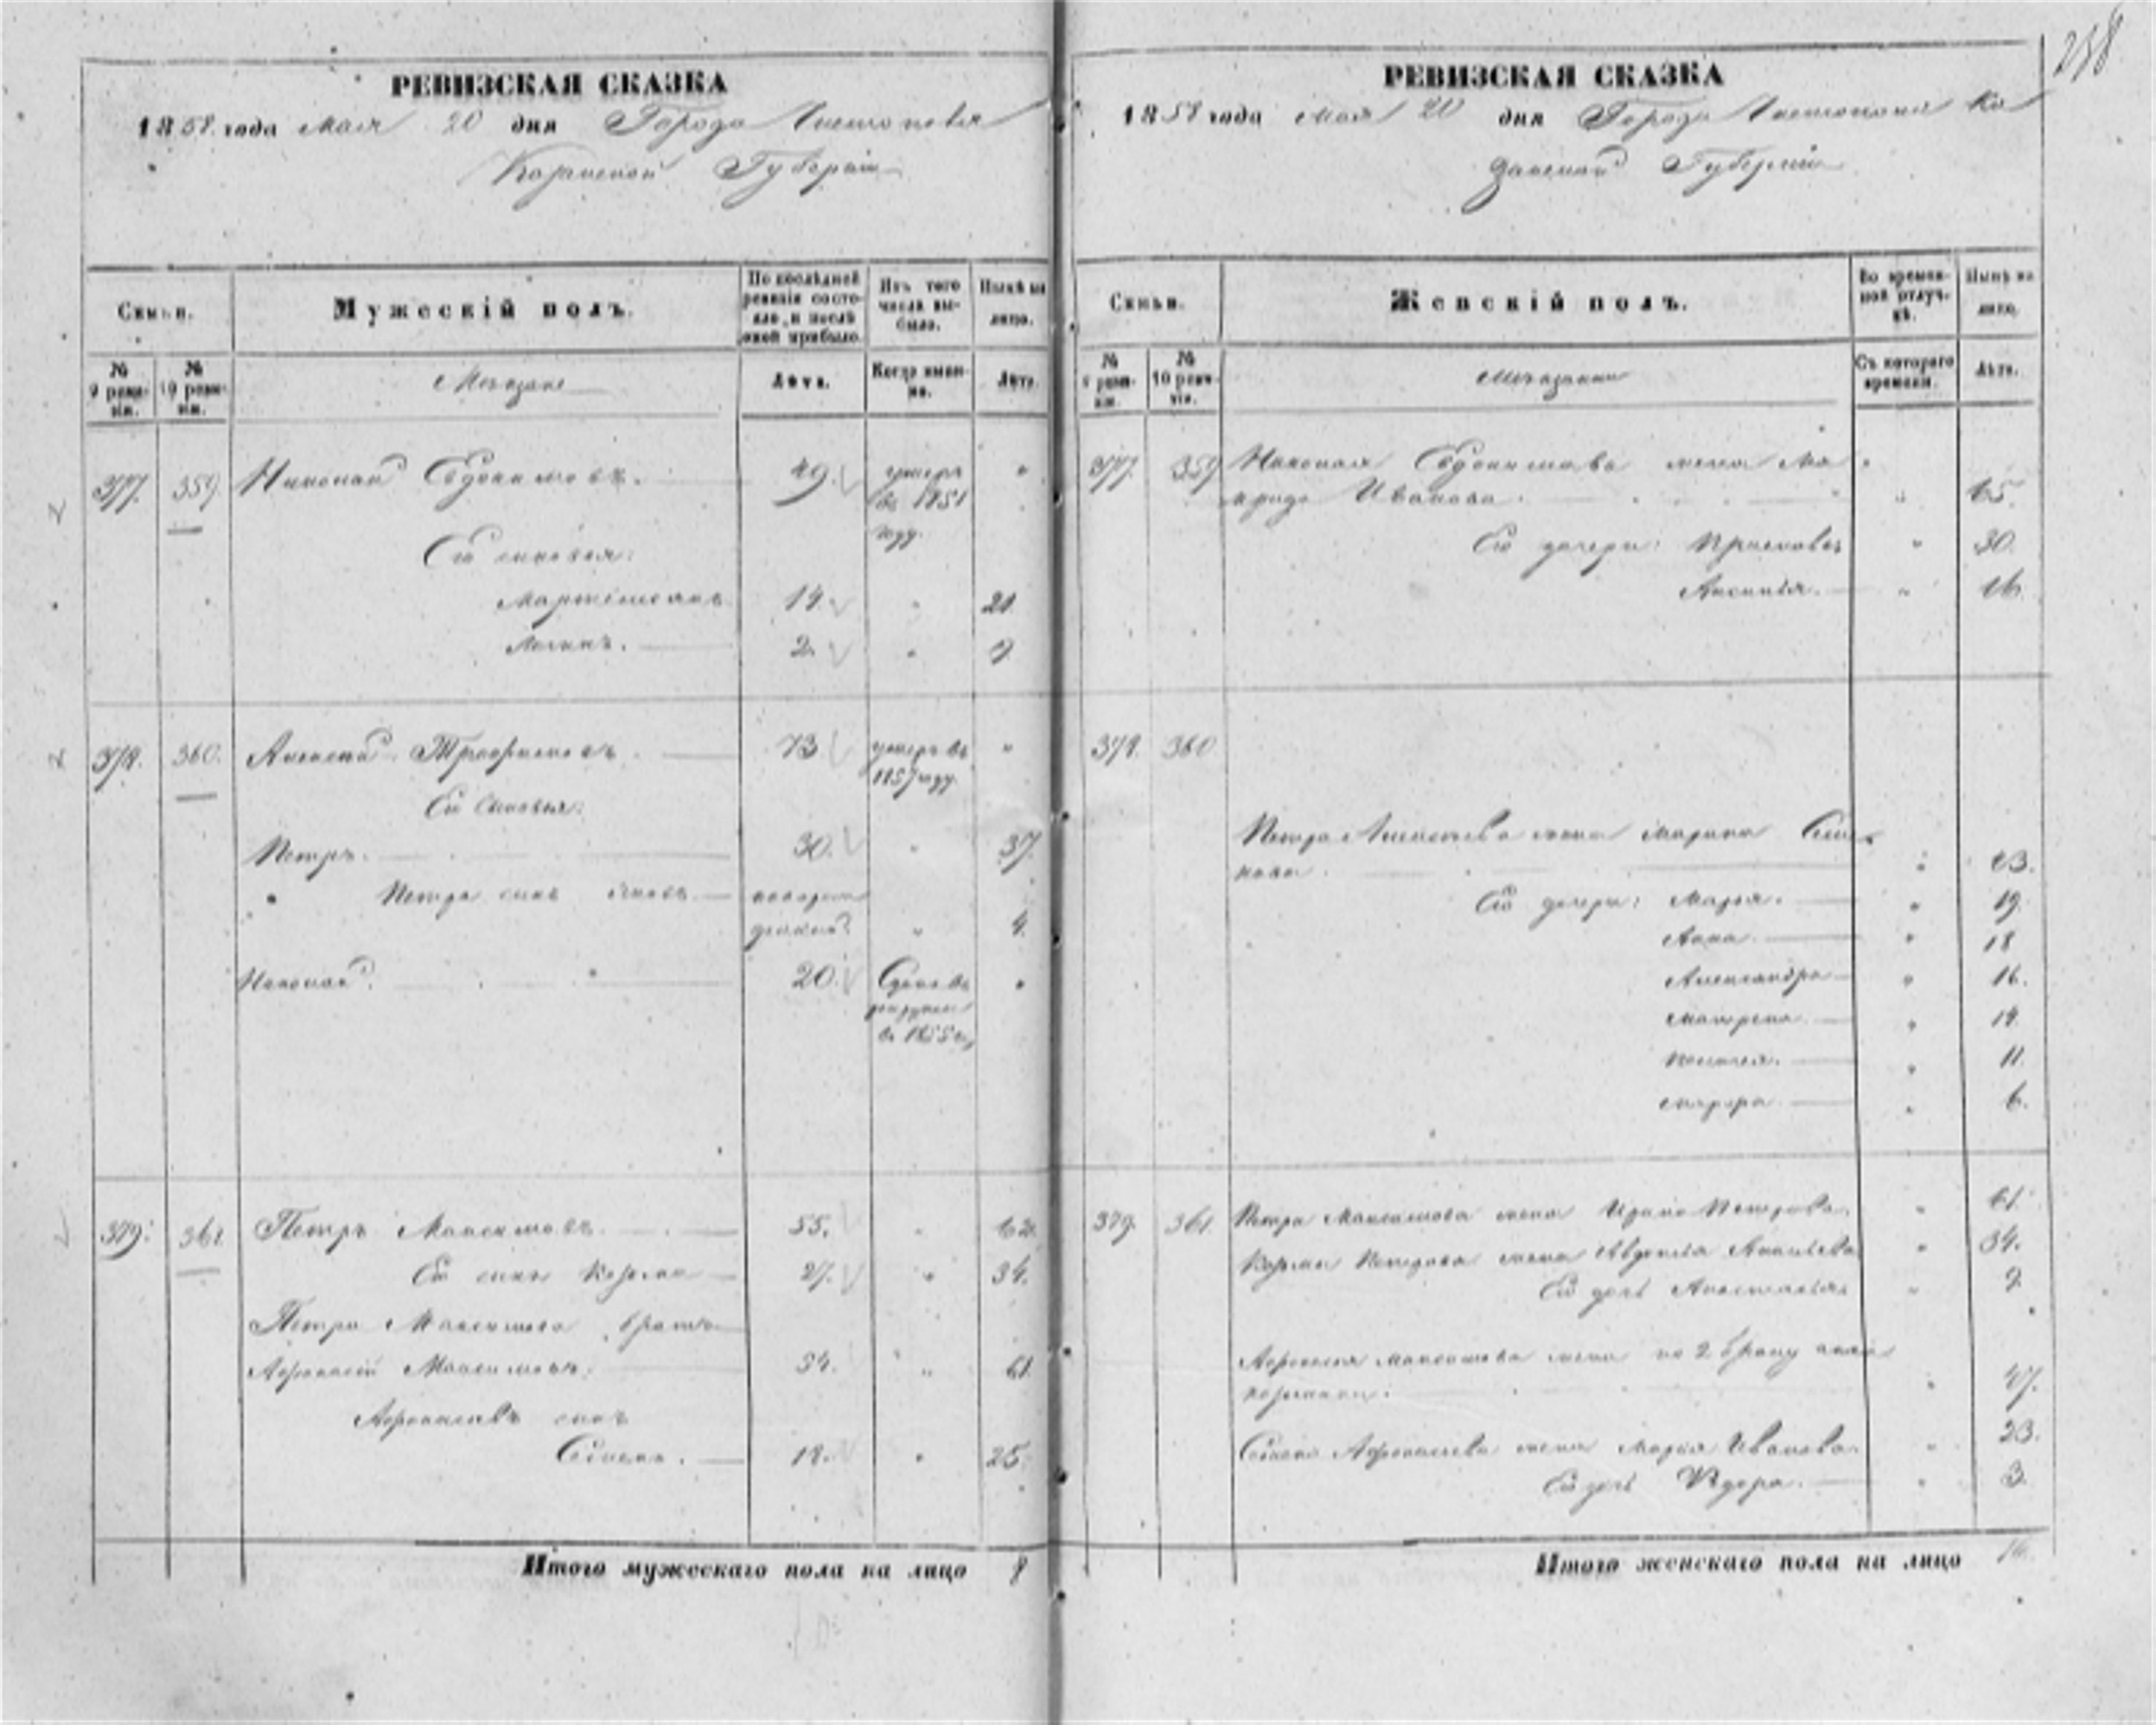 258
РЕВИЗСКАЯ СКАЗКА
1858 года Мая 20 дня Города Чистополя
Казанской Губернiи
Семьи.
Мужескiй полъ.
По послѣдней ревизiи состояло, и послѣ оной прибыло.
Изъ того числа выбыло.
Нынѣ на лицо.
№ 9 ревизiи.
№ 10 ревизiи.
Мещане
Лѣта.
Когда именно.
Лѣта.
377. 359. Николай Евдокимовъ. 49. умеръ въ 1851 году. "
Его сыновья:
14. " 21.
Логинъ. 2. " 9
378. 360. Алексей Трофимовъ. 73 умеръ въ 1857 году. "
Его сыновья:
Петръ. 30. " 37.
Петра сынъ Яковъ новорожденный. " 4.
Николай. 20. Сданъ въ рекруты въ 1855 г. "
379. 361. Петръ Максимовъ. 55. " 62.
Его сынъ Козьма 27. " 34.
Петра Максимова братъ
Афанасiй Максимовъ. 54. " 61.
сынъ
Семенъ. 18. " 25.
Итого мужескаго пола на лицо 8
РЕВИЗСКАЯ СКАЗКА
1858 года Мая 20 дня Города Чистополя Ка
занской Губернiи
Семьи.
Женскiй полъ.
Во временной отлучкѣ.
Нынѣ на лицо.
№ 9 ревизiи.
№ 10 ревизiи.
Мещанки
Съ котораго времени.
Лѣта.
377. 359 Николая Евдокимова жена Ма "
Иванова. " 65.
Его дочери: Прасковья " 30.
Аксинья. " 16.
378. 360
Петра Алексеева жена Марина Семе
нова. "
Его дочери: Марья. " 19.
Анна. " 18
Александра " 16.
Матрена. " 14.
Пелагея. " 11.
" 6.
379. 361. Петра Максимова жена Ирина Петрова. " 61.
Козьмы Петрова жена Авдотья " 34.
Его дочь Анастасья. " 9.
Афанасья Максимова жена по 2 браку
" 47.
Семена Афанасьева жена Марья Иванова. " 23.
Его дочь " 3.
Итого женскаго пола на лицо